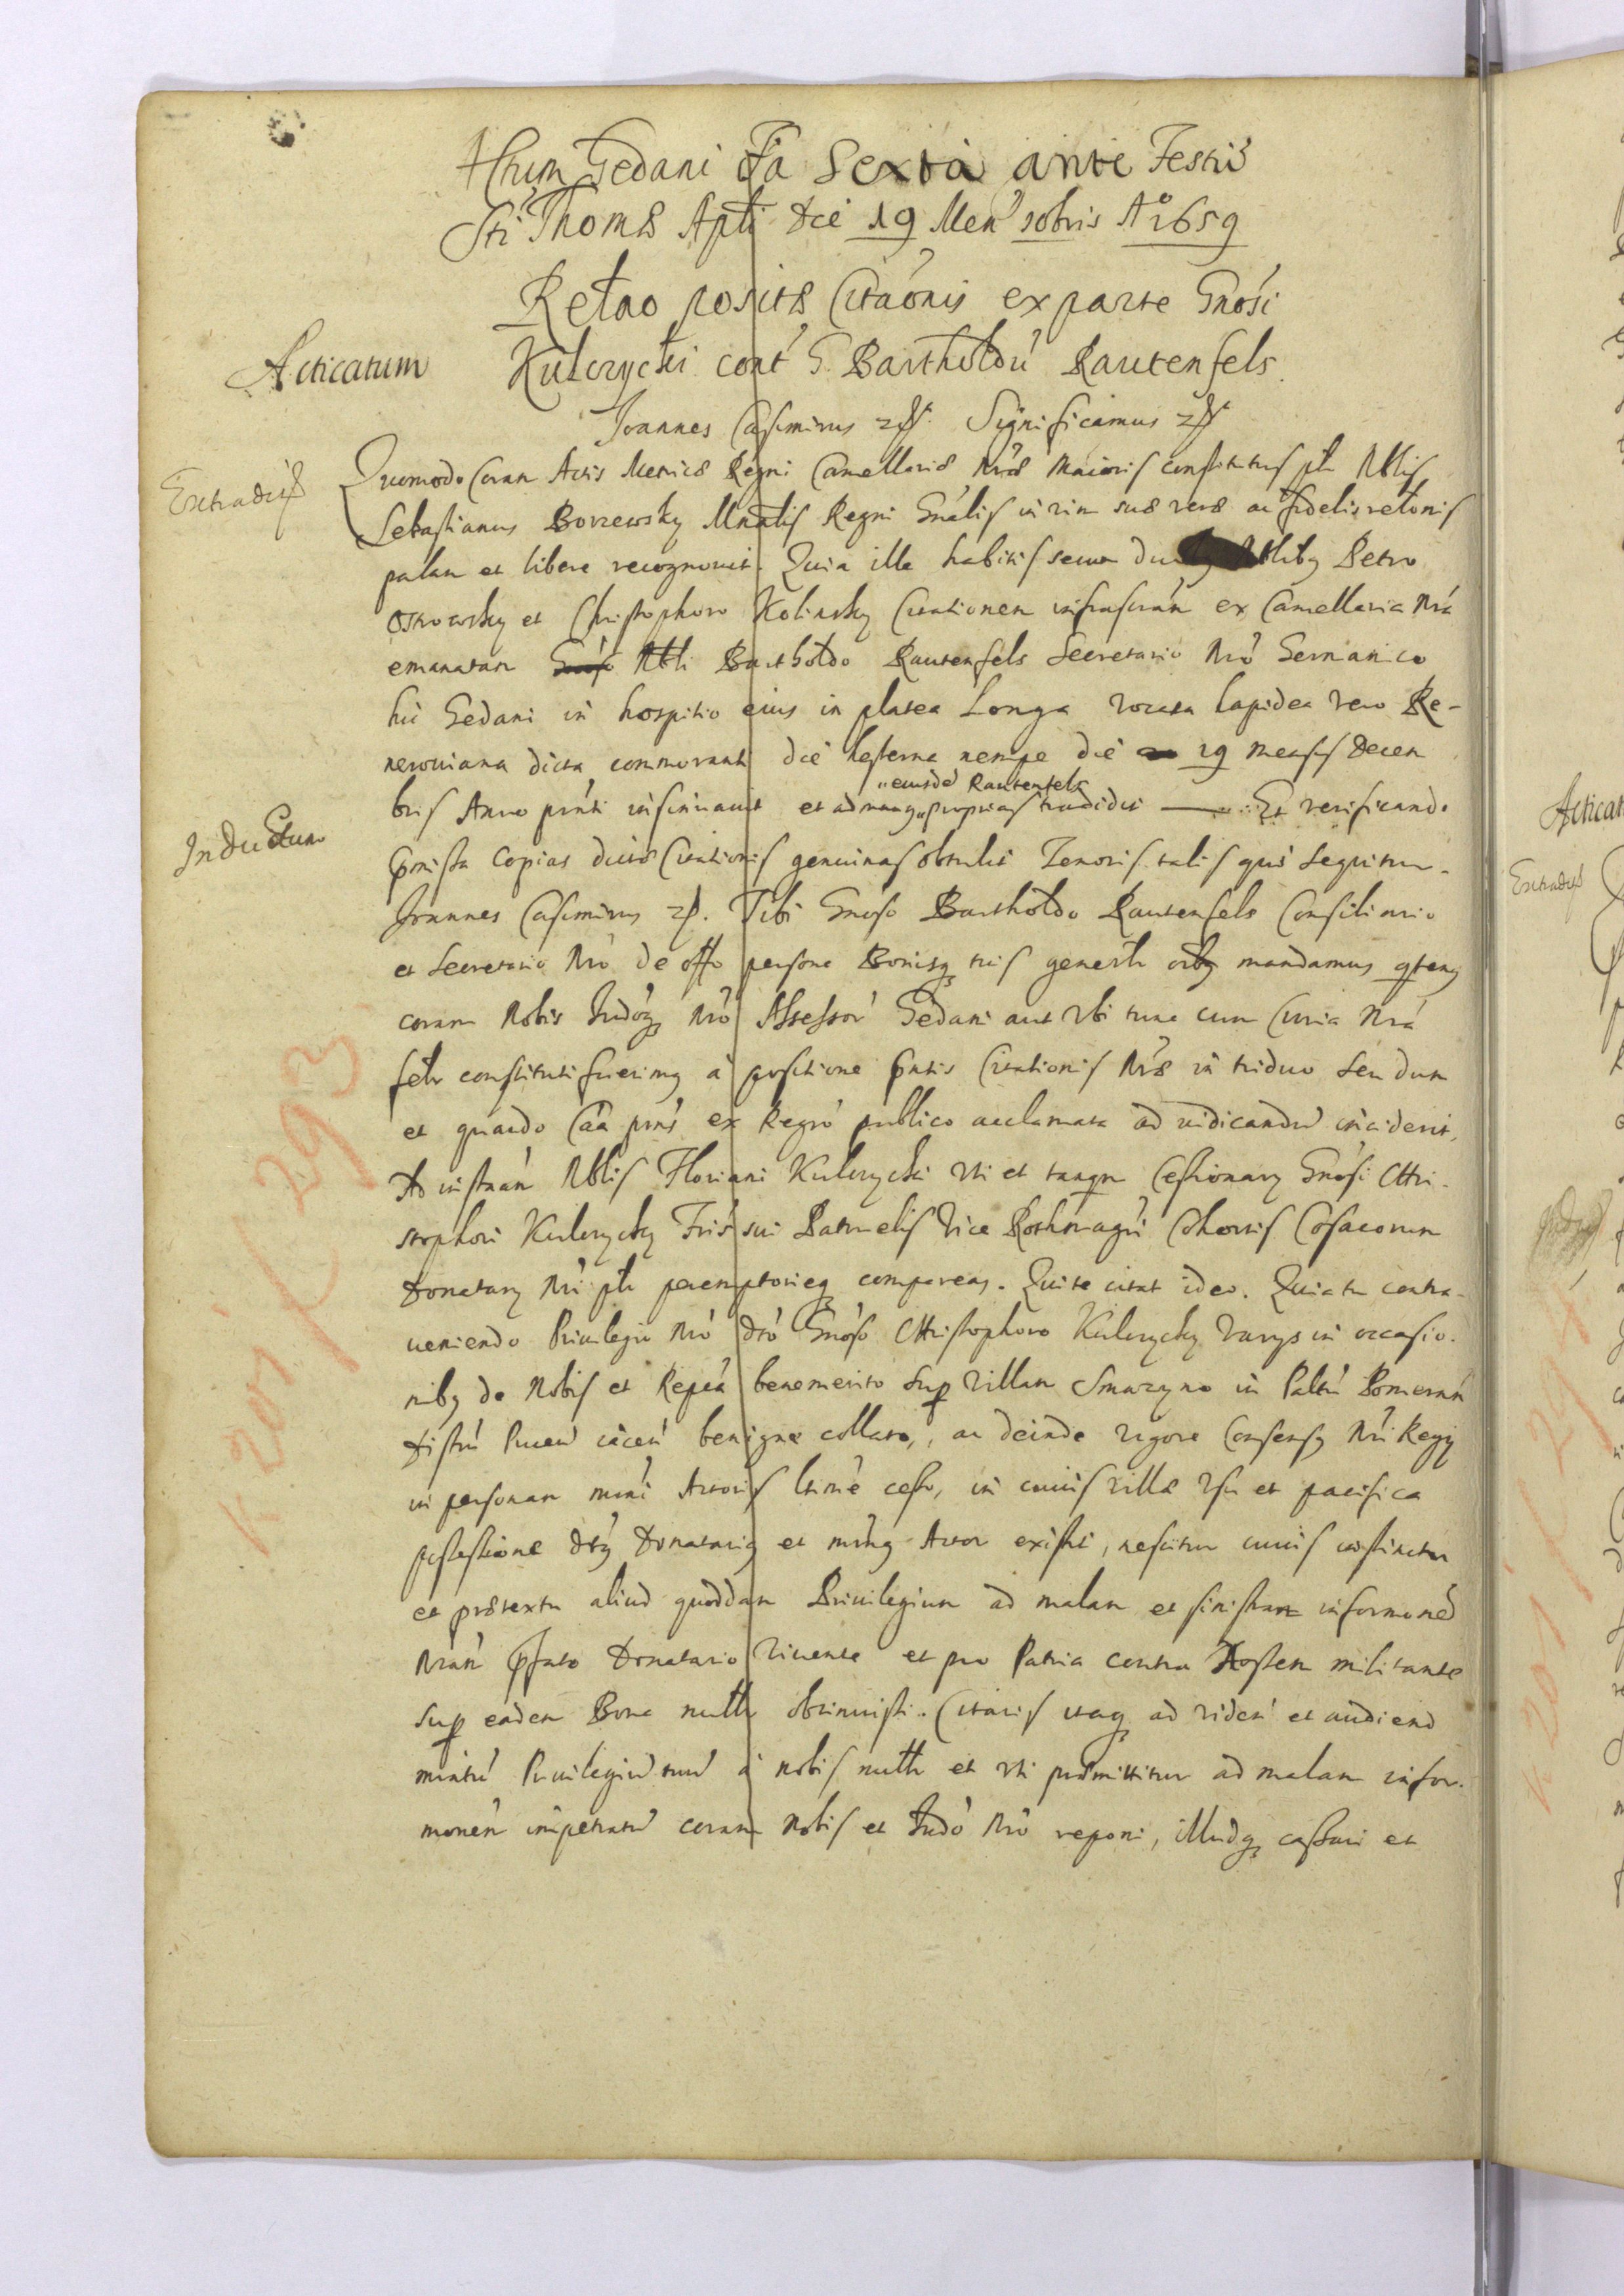 Actum Gedani Fa Sexta ante Festũ
Sti Thomæ Apli die 19 Men Xobris Aº 1659
Relao positæ Citaonis ex parte Gnosi
Acticatum
Kulczycki cont G. Bartholdũ Rautenfels.
Joannes Casimirus etc. Significamus etc
Extradit
Quomodo Coram Actis Metricæ Regni Cancellariæ Nræ Maioris constitutus psnlr Nblis
Sebastianus Borzewsky Mnrlis Regni Gnalis in vim suæ veræ ac fidelis relonis
palam et libere recognovit. Quia ille habitis secum Petro
Ostrowsky et Christophoro Kolinsky Citationem infrascrm ex Cancellaria Nra
emanatam Nbli Bartholdo Rautenfels Secretario Nro Germanico
hic Gedani in hospitio eius in platea Longa vocata lapidea vero Re-
neroviana dicta commoranti die hesterna nempe die 19 mensis Decem
"eiusde Rautenfels
bris Anno prnti insinuavit et ad manq "proprias tradidit — Et verificando
Inductum
pmissa Copias dictæ Citationis genuinas obtulit Tenoris talis qui sequitur.
Joannes Casimirus etc. Tibi Gnoso Bartholdo Rautenfels Consiliario
et Secretario Nro de offo persona Bonisq tuis generlr oibq mandamus qtenq
coram Nobis Iudoq Nro Assessor Gedani aut Ubi tunc cum Curia Nra
felr constituti fuerimq a positione pntis Citationis Nræ in triduo seu dum
et quando Caa pns ex Regro publico acclamata ad iudicandũ inciderit,
Ad instaam Nblis Floriani Kulczycki uti et tanqm Cessionary Gnosi Chri-
stophori Kulczycky Fris sui Patruelis Vice Rothmagri Cohortis Cosacorum
Donatary Nri psnlr peremptorieq compareas. Qui te citat ideo. Quia tu contra-
veniendo Privilegio Nro dto Gnoso Christophoro Kulczycky varys in occasio-
nibq de Nobis et Repca benemerito sup Villam Smazyno in Paltu Pomeran
Distru Pucen iacen benigne collato, ac deinde vigore Consensq Nri Regy
in personam mni Actoris ltime cesso, in cuius villæ Usu et pacifica
possessione dtq Donatariq et mnq Actor existit, nescitur cuius instinctu
et prætextu aliud quoddam Privilegium ad malam et sinistram informonẽ
Nram pfato Donatario Vivente et pro Patria contra Hostem militante
sup eadem Bona nullr obtinuisti. Citaris itaq ad viden et audiend
mintu Privilegiũ tuũ a nobis nullr et uti præmittitur ad malam infor-
monen impetratũ coram Nobis et Iudo Nro reponi, illudq cassari et
k 201 / 293
Acticat
Extradit